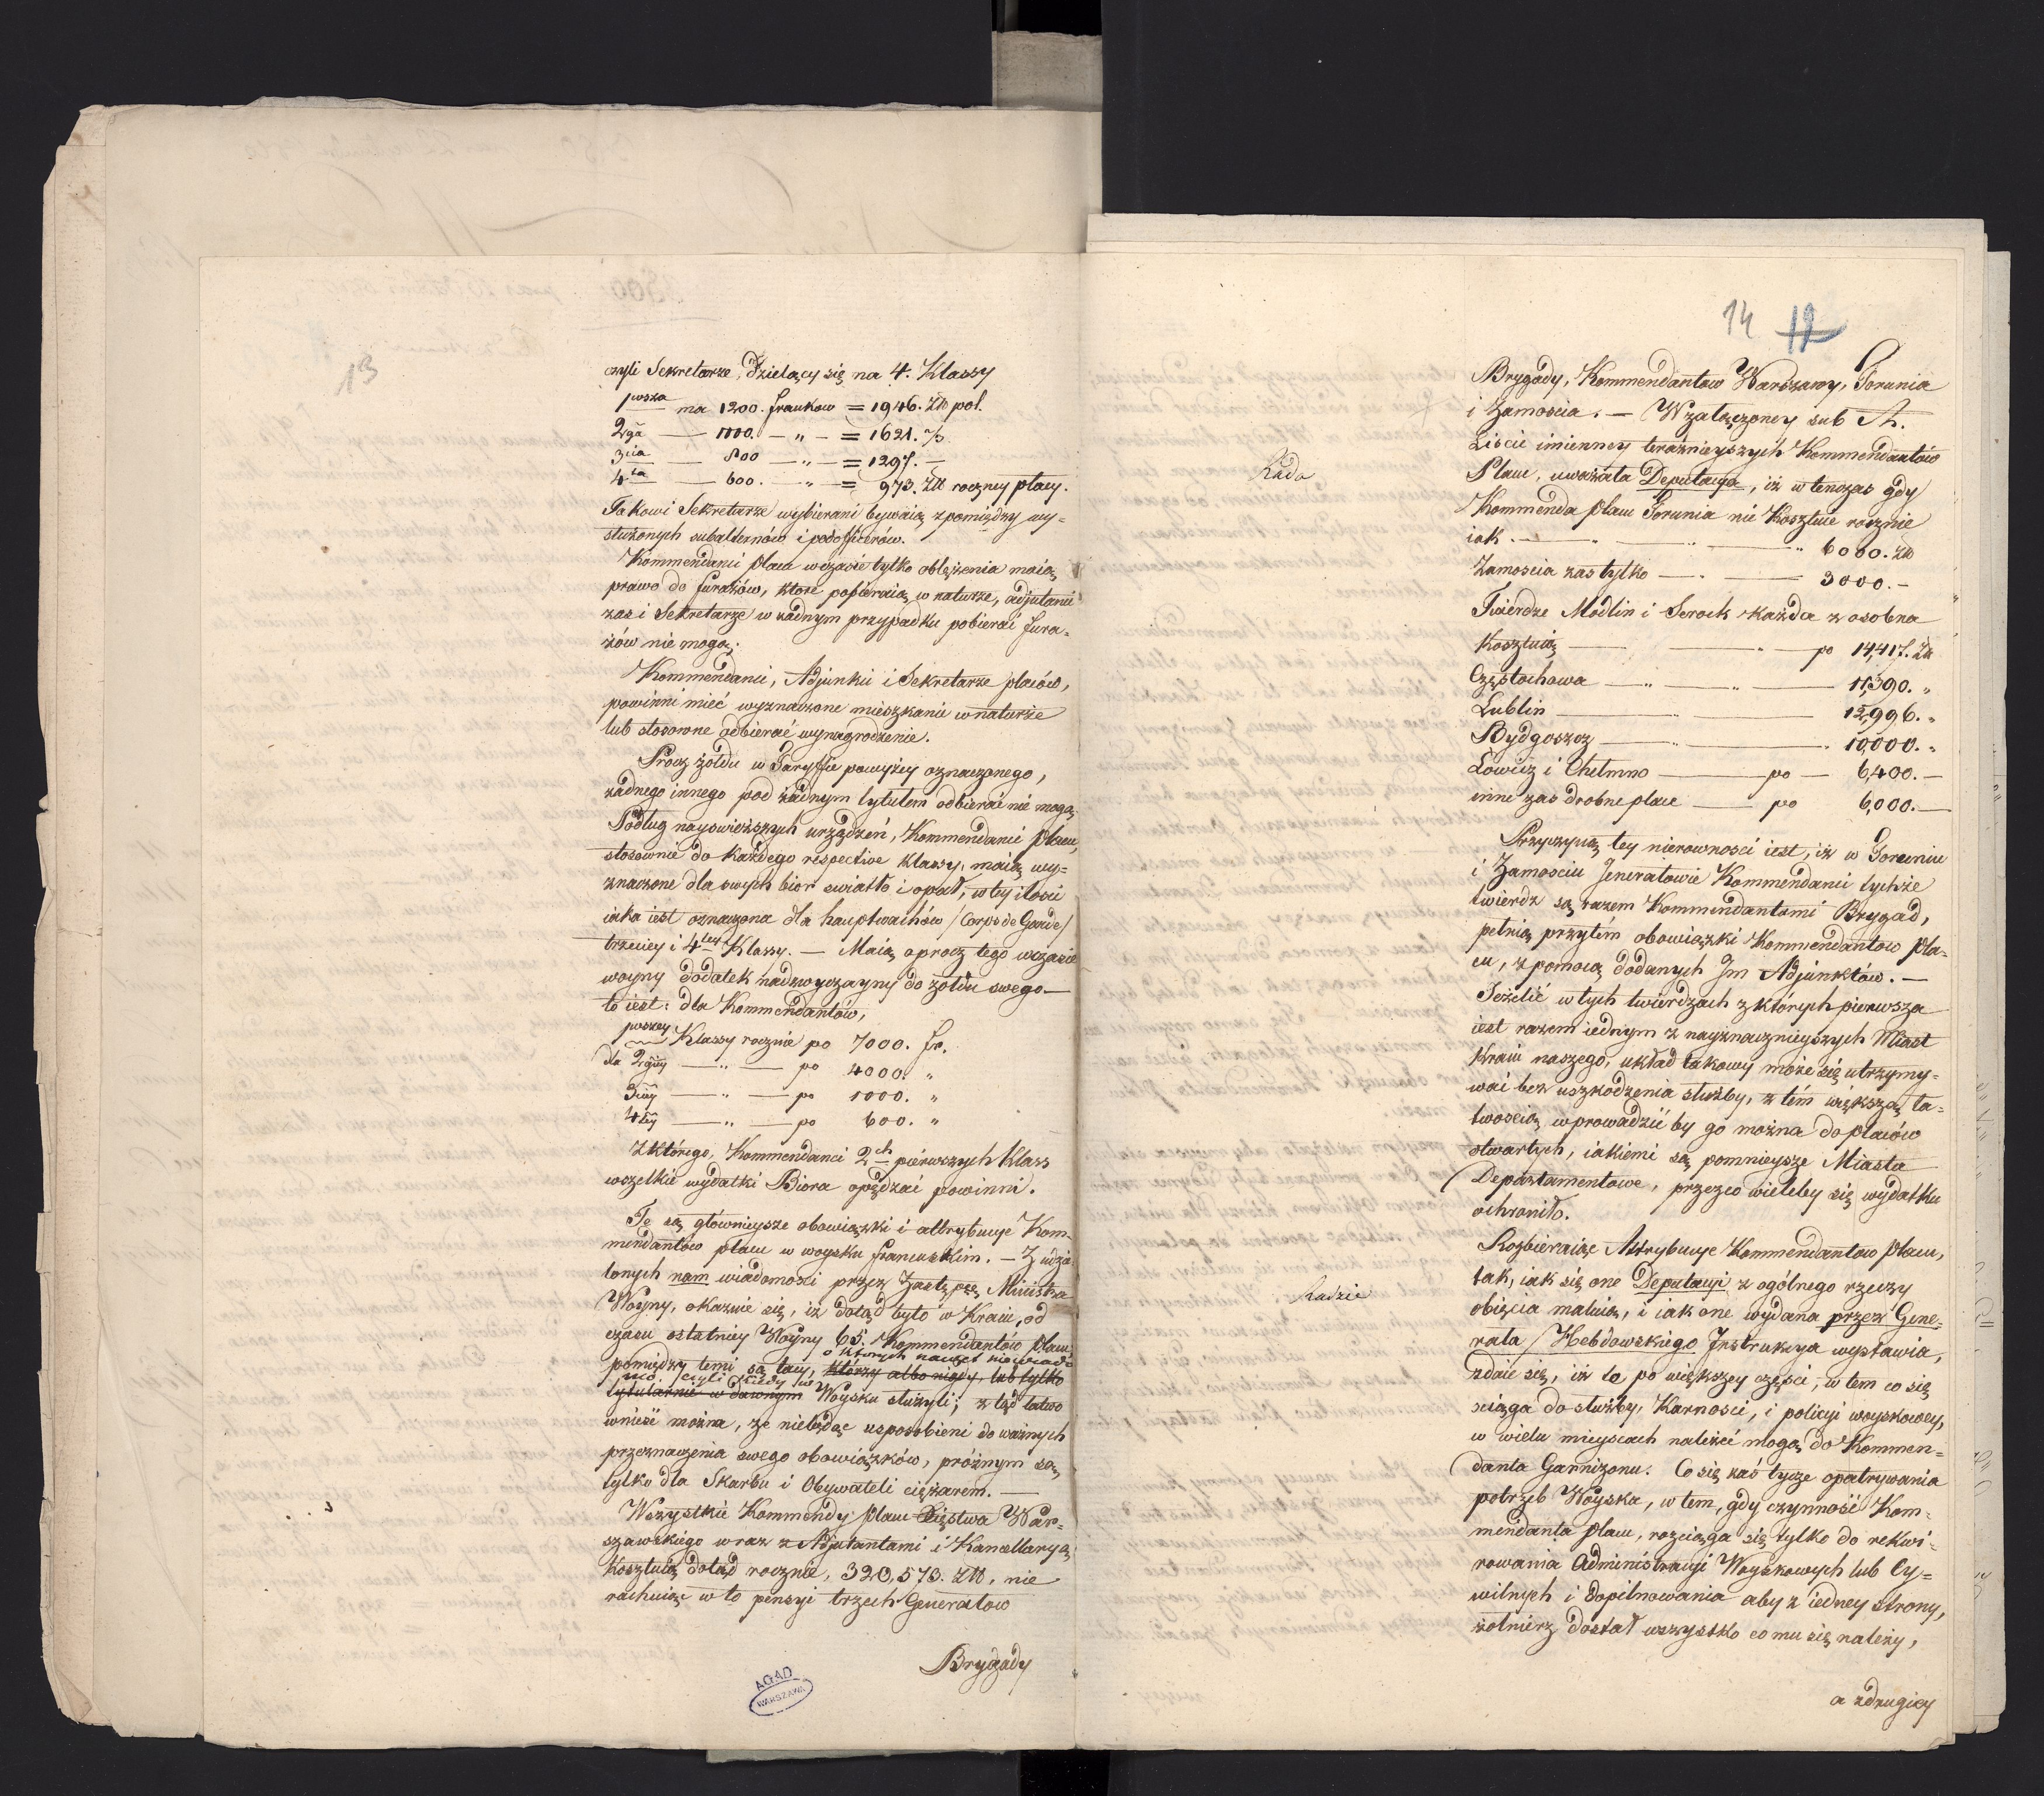 13
czyli Sekretarze, dzielący się na 4. Klassy
1wsza ma 1200. frankow = 1946. Złł pol.
2ga — 1000. — „ — = 1621. „
3cia — 800 — „ — = 1297. —
4ta — 600. — „ — = 973. Złł roczney płacy.
Takowi Sekretarze wybierani bywaią zpomiędzy wy=
służonych subalternów i podofficerów.
Kommendanci placu wczasie tylko oblężenia maią
prawo do furażów, które pobieraią w naturze, adjutanci
zas i Sekretarze w żadnym przypadku pobierać fura=
żów nie mogą.
Kommendanci, Adjunkci i Sekretarze placów,
powinni mieć wyznaczone mieszkanie w naturze
lub stosowne odbierać wynagrodzenie.
Procz żołdu w Taryffie powyżey oznaczonego,
żadnego innego pod żadnym tytułem odbierać nie mogą.
Podług nayswieższych urządzeń, Kommendanci placu,
stosownie do każdego respective klassy, maią wy=
znaczone dla swych biór swiatło i opał, w tey ilosci
iaka iest oznaczona dla hauptwachów /Corps de Garde/
trzeciey i 4tey Klassy. — Maią oprocz tego wczasie
woyny dodatek nadzwyczayny do żołdu swego —
to iest: dla Kommendantów,
pwszey Klassy rocznie po 7000. fr.
dla 2giey — „ — po 4000. „
3ciey — „ — po 1000. „
4tey — „ — po 600. „
Zktórego, Kommendanci 2ch pierwszych Klass
wszelkie wydatki Biora opędzać powinni.
Te są głównieysze obowiązki i attrybucye Kom=
mendantow placu w woysku francuskim. — Z udzie
lonych nam wiadomosci przez Zastępcę Ministra
Woyny, okazuie się, iż dotąd było w Kraiu, od
czasu ostatniey Woyny 65. Kommendantów placu
o których nawet niewiado
pomiędzy temi są tacy, którzy albo nigdy, lub tylko
mo czyli kiedy w
tytularnie w dawnym Woysku służyli; z tąd łatwo
wnieść można, że niebędąc usposobieni do ważnych
przeznaczenia swego obowiązków, próżnym są
tylko dla Skarbu i Obywateli ciężarem. —
Wszystkie Kommendy placu Xięstwa War=
szawskiego wraz z Adjutantami i Kancellaryą
kosztuią dotąd rocznie, 320,573. Złł, nie
rachuiąc w to pensyi trzech Generałow
Brygady
A.G.A.D.
WARSZAWA
14 12
Brygady, Kommendantow Warszawy, Torunia
i Zamoscia. — Wzałączoney sub A.
Liście imienney teraźnieyszych Kommendantów
Rada
Placu, uważała Deputacya, iż w tenczas gdy
Kommenda placu Torunia nie kosztuie rocznie
iak. — „ — „ — „ 6000. Złł
Zamoscia zas tylko — „ — 3000. —
Twierdze Modlin i Serock każda z osobna
kosztuią — „ — po 14,417. Złł
Częstochowa — „ — „ — 11,390. „
Lublin — „ — 12,996. „
Bydgoszcz — „ — „ 10,000. „
Łowicz i Chełmno — po — 6,400. —
inne zas drobne place — po 6,000. —
Przyczyną tey nierownosci iest, iż w Toruniu
i Zamosciu Jenerałowie Kommendanci tychże
twierdz są razem Kommendantami Brygad,
pełnią przytém obowiązki Kommendantow pla=
cu, z pomocą dodanych Jm Adjunktów. —
Jeżelić w tych twierdzach z których pierwsza
iest razem iednym z nayznacznieyszych Miast
Kraiu naszego, układ takowy może się utrzymy=
wać bez uszkodzenia służby, z tém większą ła=
twoscią wprowadzić by go można do placów
otwartych, iakiemi są pomnieysze Miasta
Departamentowe, przezco wieleby się wydatku
ochroniło.
Rozbieraiąc Attrybucye Kommendantow placu,
Radzie
tak, iak się one Deputacyi z ogólnego rzeczy
obięcia maluią, i iak one wydana przez Gene=
rała Hebdowskiego Instrukcya wystawia,
zdaie się, iż to po większey części, w tem co się
sciąga do służby, Karnosci, i policyi woyskowey,
w wielu mieyscach należeć mogą do Kommen=
danta Garnizonu. Co się zaś tycze opatrywania
potrzeb Woyska, w tem, gdy czynność Kom=
mendanta placu, rozciąga się tylko do rekwi=
rowania Administracyi Woyskowych lub Cy=
wilnych i dopilnowania aby z iedney strony,
żołnierz dostał wszystko co mu się należy,
a zdrugiey